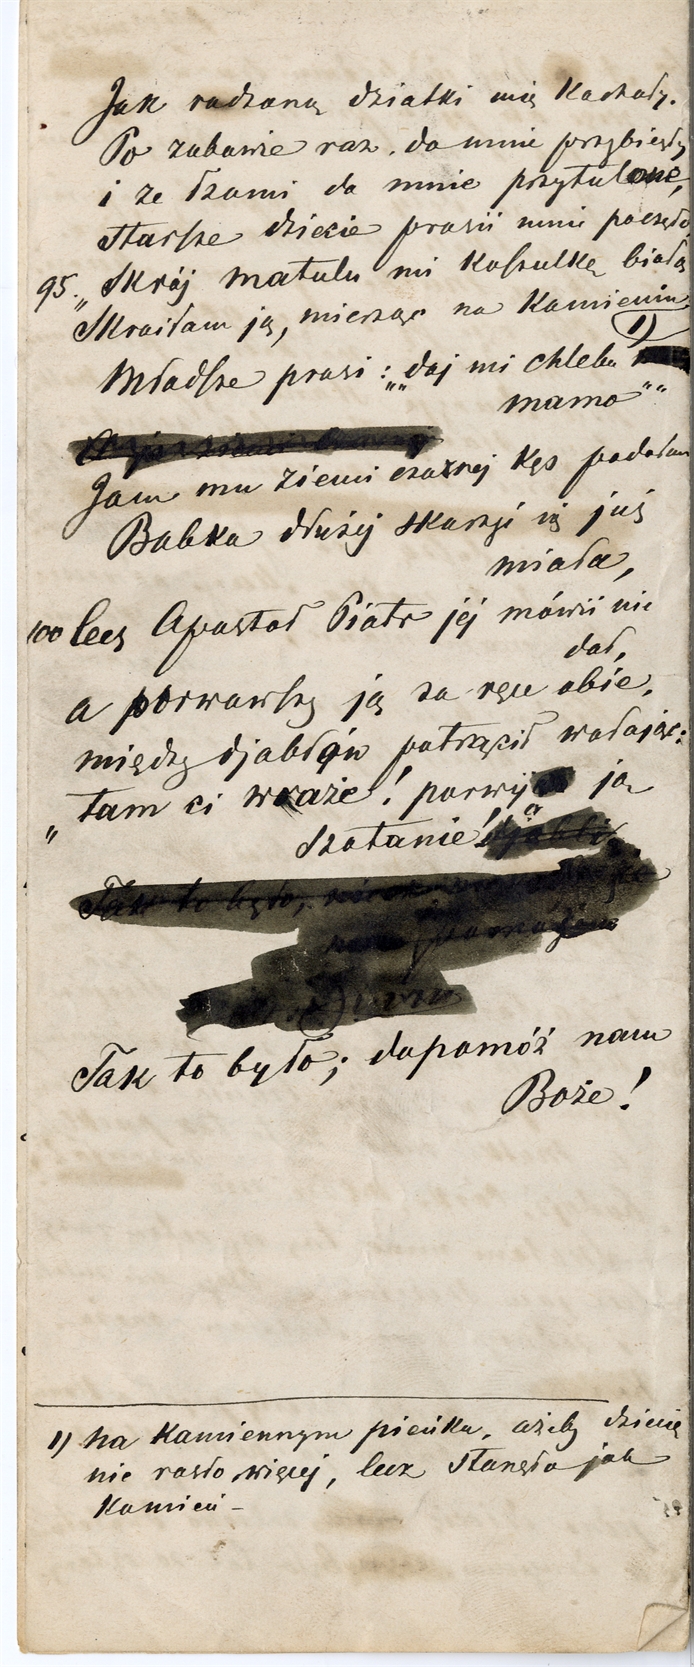 Jak rodzoną dziatki mię kochały.
Po zabawie raz do mnie przybiegły
i ze łzami do mnie przytulone,
starsze dziecie prosić mnie poczęło
95. „Skrój matulu mi koszulkę białą
Skroiłam ją, mierząc na kamieniu 1)
Młodsze prosi: „„daj mi chleba
mamo””
Jam mu ziemi czarnej kęs podałam
Babka dłużej skarżyć się już
miała,
100 lecz Apostoł Piotr jej mówić nie
dał,
a porwawszy ją za ręce obie,
między djabłów potrącił wołając:
„tam ci wraże! porwij ją
szatanie!
Tak to było,
Tak to było; dopomóż nam
Boże!
1) na kamiennym pieńku, ażeby dziecię
nie rosło więcej, lecz stanęło jak
kamień –